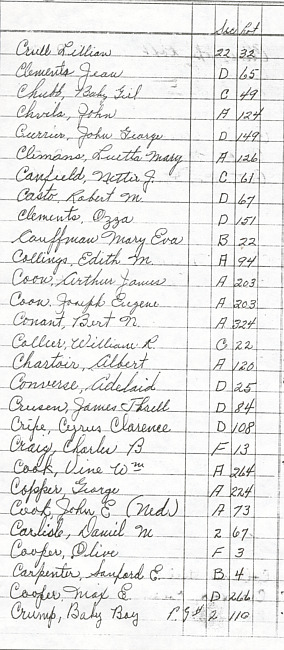 Sec Lot
Crull Lillian 22 32
Clements Jean D 65
Chubb, Baby Girl C 49
Chvila, John A 124
Currier, John George D 149
Climans, Luetta Mary A 126
Canfield, Nettie J. C 61
Casto, Robert M. D 67
Clements, Ozza D 151
Cauffman Mary Eva B 22
Collings, Edith M. A 94
Coon, Arthur James A 203
Coon, Joseph Eugene A 203
Conant, Bert N. A 324
Collier, William R. C 22
Chartoir, Albert A 120
Converse, Adelaid D 25
Creisen, James Threll D 84
Cripe, Cyrus Clarence D 108
Craig, Charles B F 13
Cook, Vine Wm A 264
Copper George A 224
Cook, John E. (Ned) A 73
Carlisle, Daniel M 2 67
Cooper, Olive F 3
Carpenter, Sanford E. B 4
Cooper Max E. D 266
Crump, Baby Boy 2 110